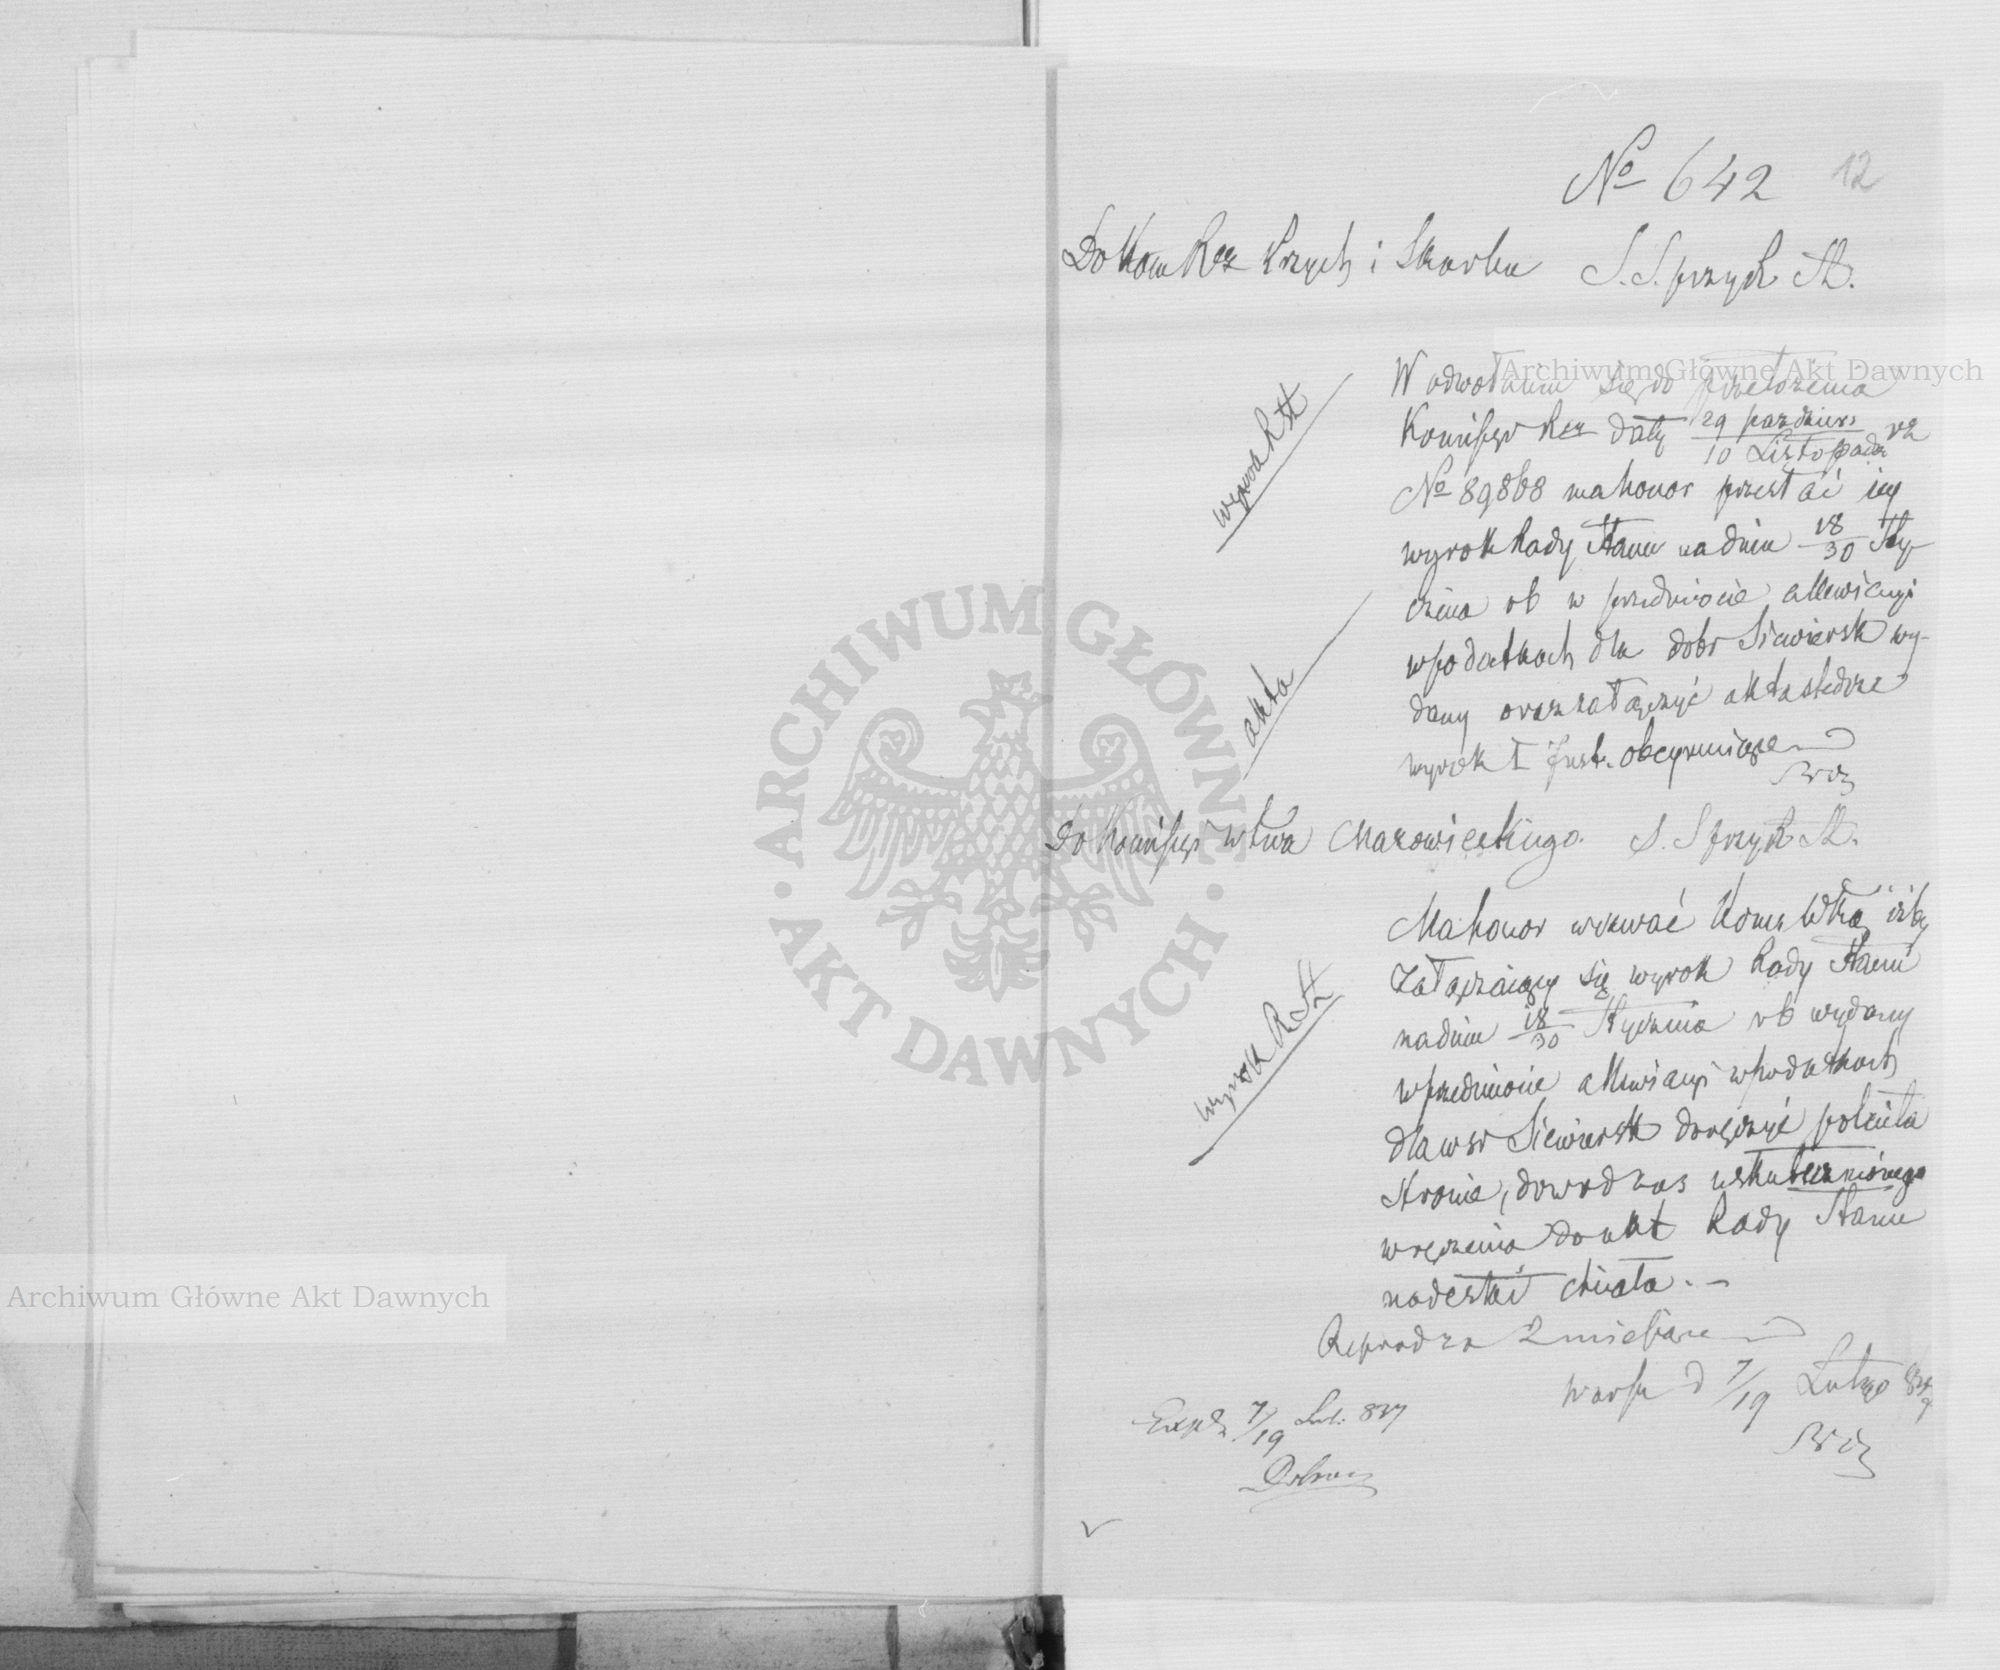 No 642 12
Do Kom Rz Przych i Skarbu S. S. przy R St.
W odwołaniu się do przełożenia
Kommissyi Rz daty 29 październ / 10 Listopada rz
No 89868 ma honor przesłać iey
wyrok Rady Stanu na dniu 18/30 Sty-
cznia rb w przedmiocie allewiacyi
w podatkach dla dobr Siewiersk wy-
dany oraz załączyć akta śledcze
wyrok I Inst. obeymuiące
wyrok R St
akta
Do Kommissyi Wtwa Mazowieckiego. S. S przy R St.
Ma honor wezwać Komm Wtwa iżby
załączaiący się wyrok Rady Stanu
na dniu 18/30 Stycznia rb wydany
w przedmiocie allewiacyi w podatkach
dla wsi Siewiersk doręczyć poleciła
stronie, dowod zaś uskutecznionego
wręczenia do akt Rady Stanu
nadesłać chciała. -
wyrok R St
Reprod za 2 miesiące
Warsz d 7/19 Lutego 837
Exped 7/19 Lut: 837
Archiwum Główne Akt Dawnych
Archiwum Główne Akt Dawnych
ARCHIWUM GŁÓWNE · AKT DAWNYCH ·